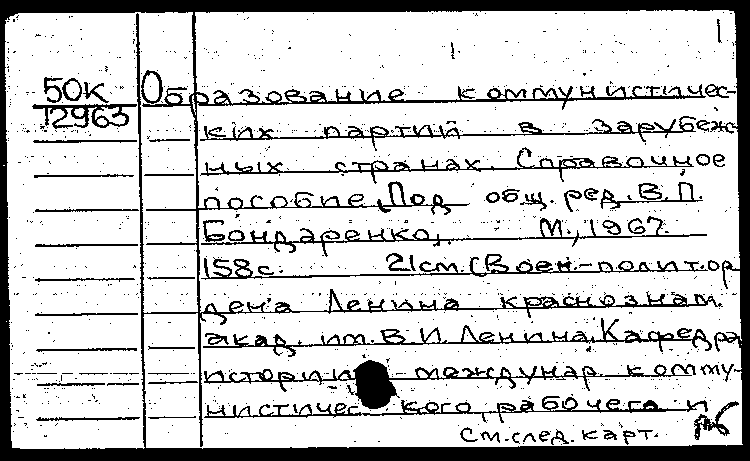 50к
12963
Образование коммунистичес-
ких партий в зарубеж-
ных странах. Справочное
пособие. Под общ. ред. В. П.
Бондаренко.. М., 1967.
158 с. 21 см. (Воен.-полит. ор
дена Ленина краснознам.
акад. им. В. И. Ленина. Кафедра
истории междунар комму-
нистичес кого, рабочего и
См. след. карт.